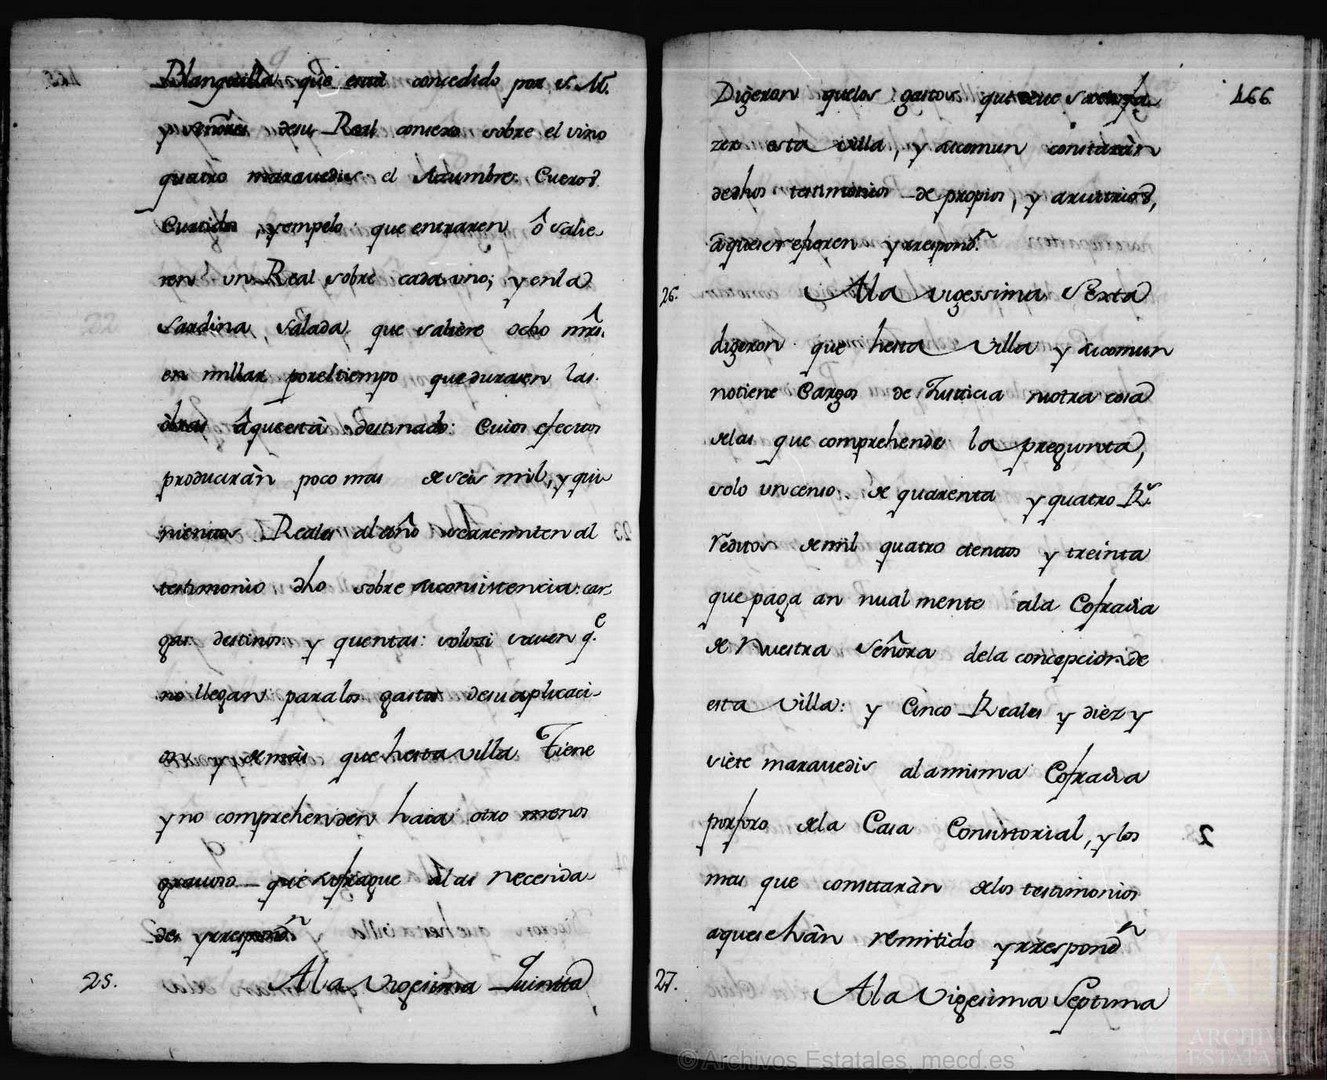 Blanquilla que está concedido por S. M.
y Señores desu Real consexo sobre el vino
quatro maravedis el Azumbre: Cueros
Curtidos, yempelo que entraren ô salie
ren un Real sobre cada uno; y enla
Sardina, Salada que saliere ocho mrs.
en millar porel tiempo que duraren las
obras âqueestà destinado: Cuios efectos
produciràn poco mas deseis mil, y qui
nientos Reales al año searemiten al
testimonio dho sobre suconsistencia: car
gas destinos y quentas: solosi saven q.e
no llegan paralos gastos desuaplicaci
on y demàs que hesta villa Tiene
y no comprehenden haia otro menos
gravoso que sufrague alas necesida
des yrrespond.n
25. Ala Vigesima Quintta
466
Digeron quelos gastos quedeve satisfa
zer esta villa, y sucomun constaràn
dedhos testimonios de propios, y aruitrios,
àqueserefieren yrrespond.n
26. Ala vigessima Sexta
digeron que hesta Villa y sucomun
notiene Cargos de Justicia niotra cosa
delas que comprehende la pregunta,
solo uncenso de quarenta y quatro R.s
rèditos demil quatro cientos y treinta
que paga an nual mente àla Cofradia
de Nuestra Señora dela concepcion de
esta Villa: y Cinco Reales y diez y
siete maravedis alamisma Cofradia
porforo dela Casa Consistorial, y los
mas que constaràn delos testimonios
aquesehàn remitido yrrespond.n
27. Ala Vigesima Septima
© Archivos Estatales, mecd.es
ARCHIVOS
ESTATALES